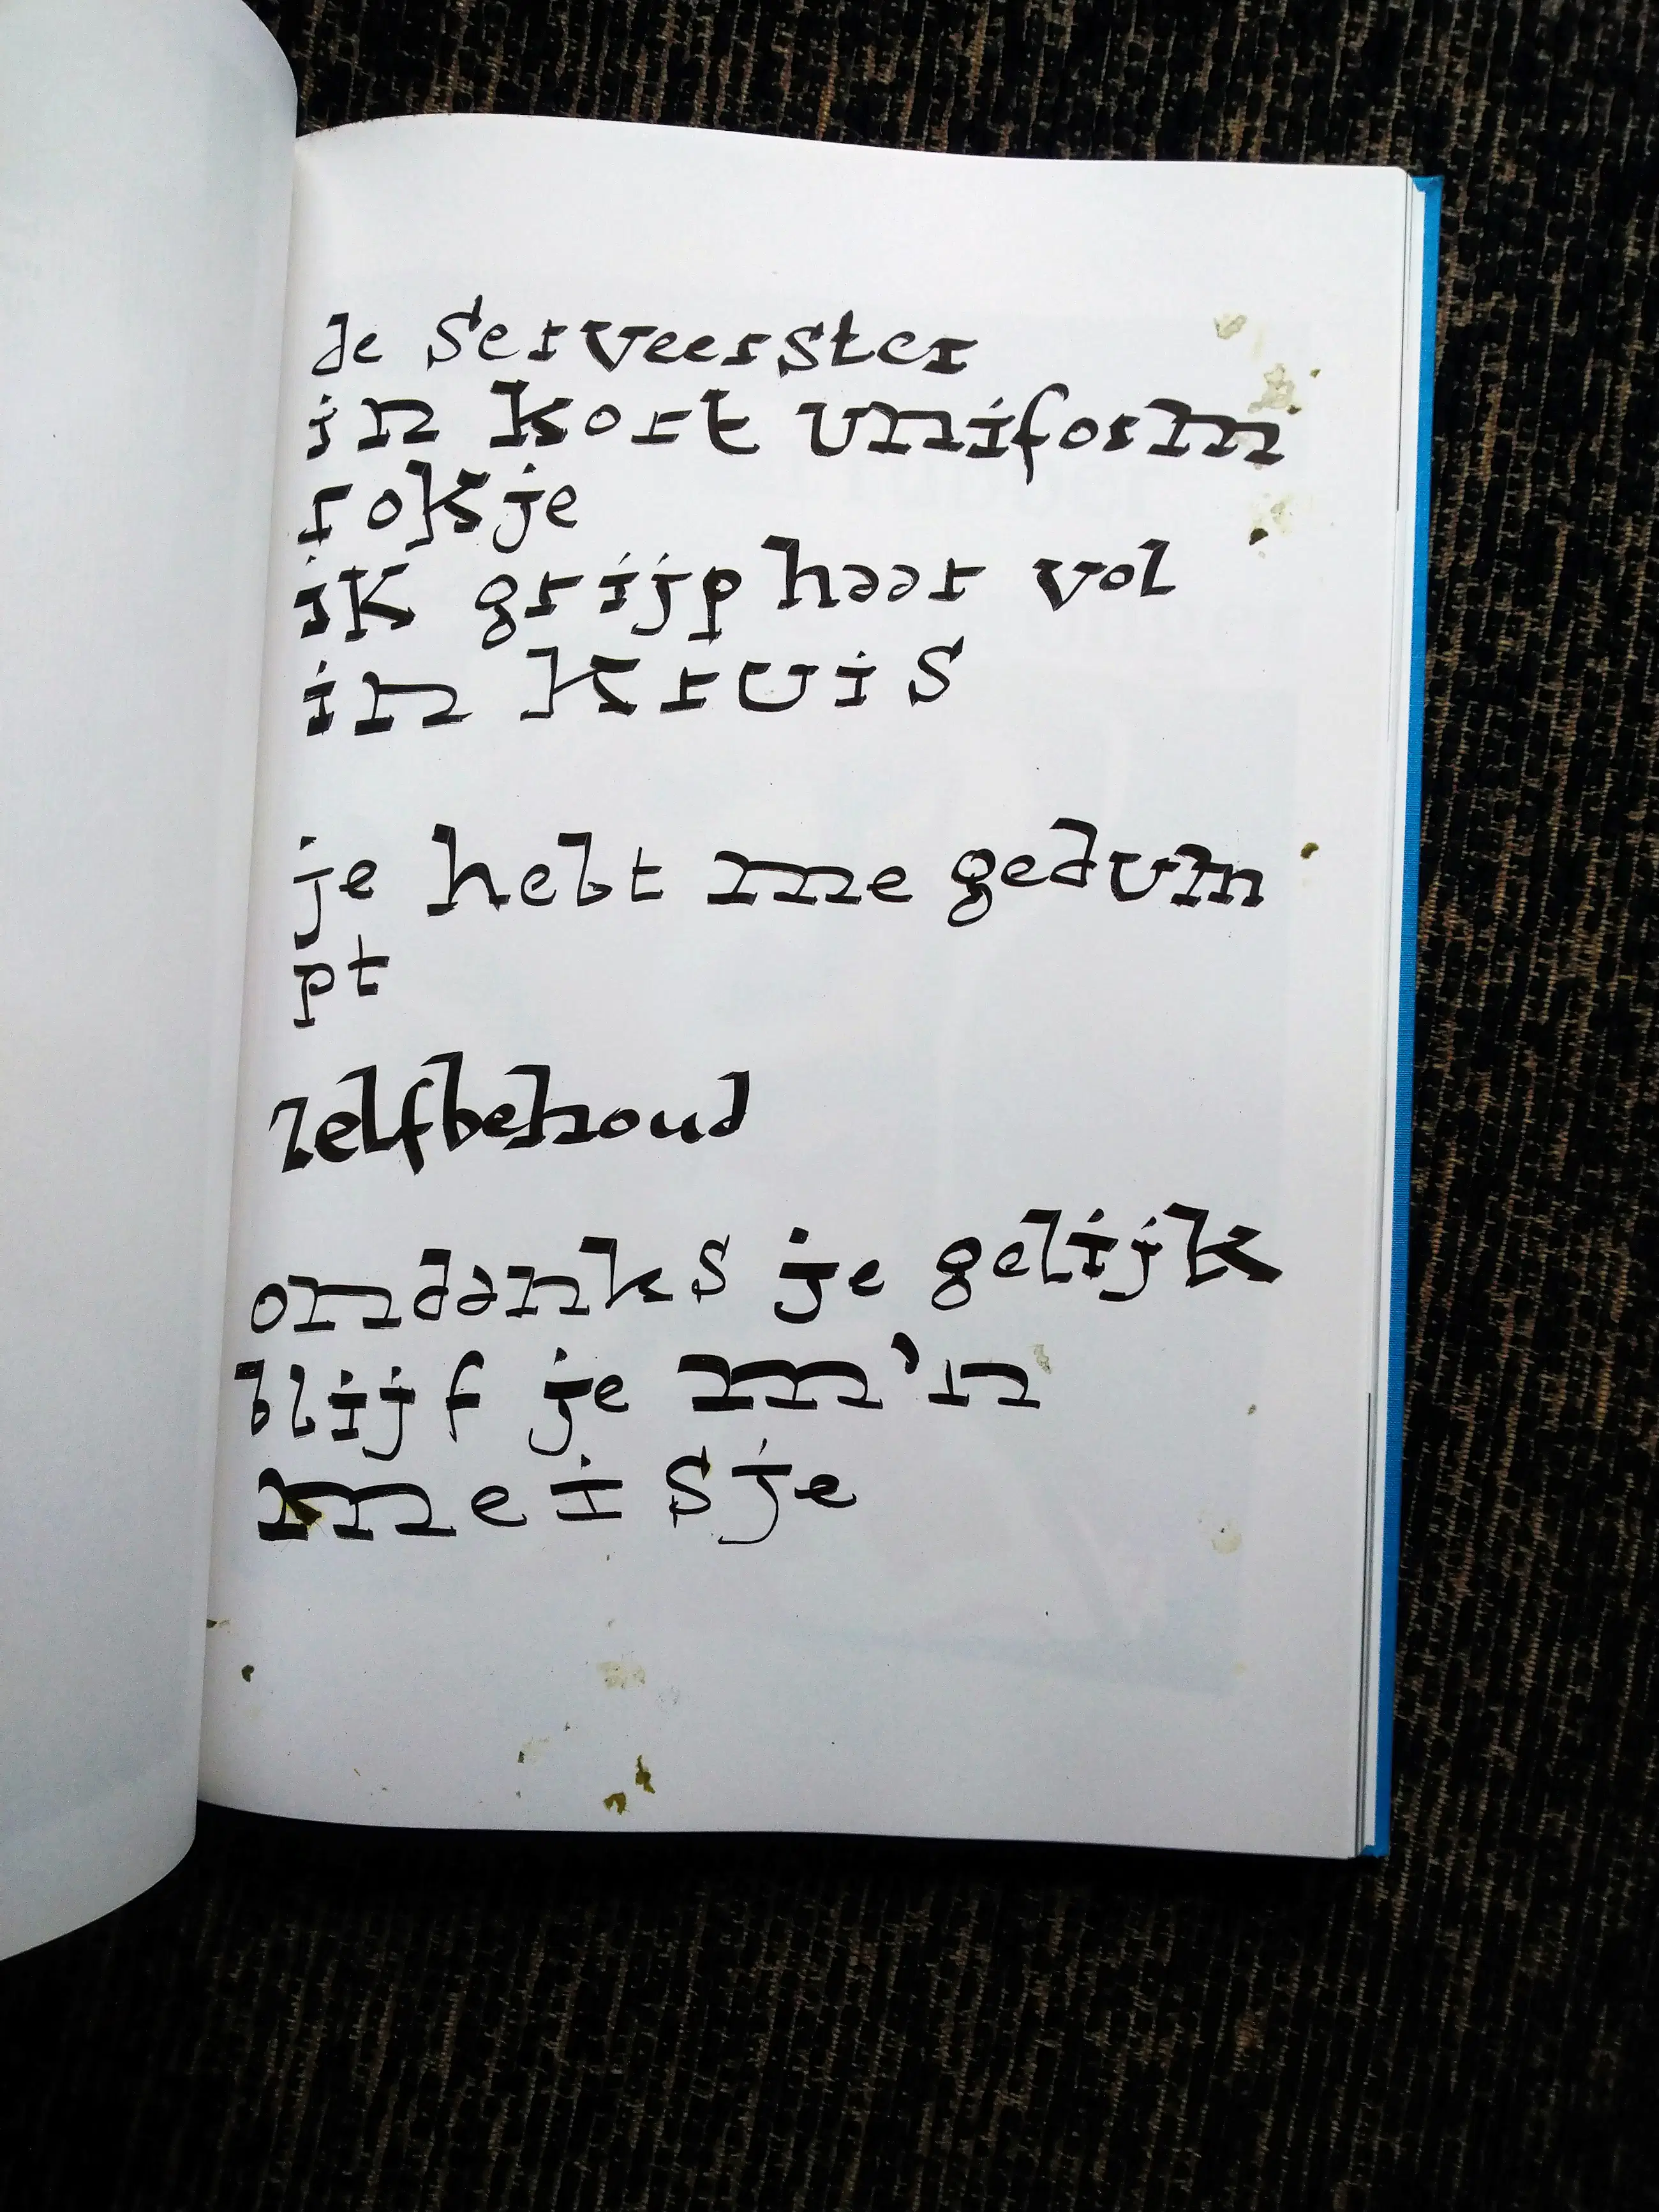 de Serveerster
in kort uniform
rokje
ik grijp haar vol
in kruis
je hebt me gedum
pt
zelfbehoud
ondanks je gelijk
blijf je m'n
meisje